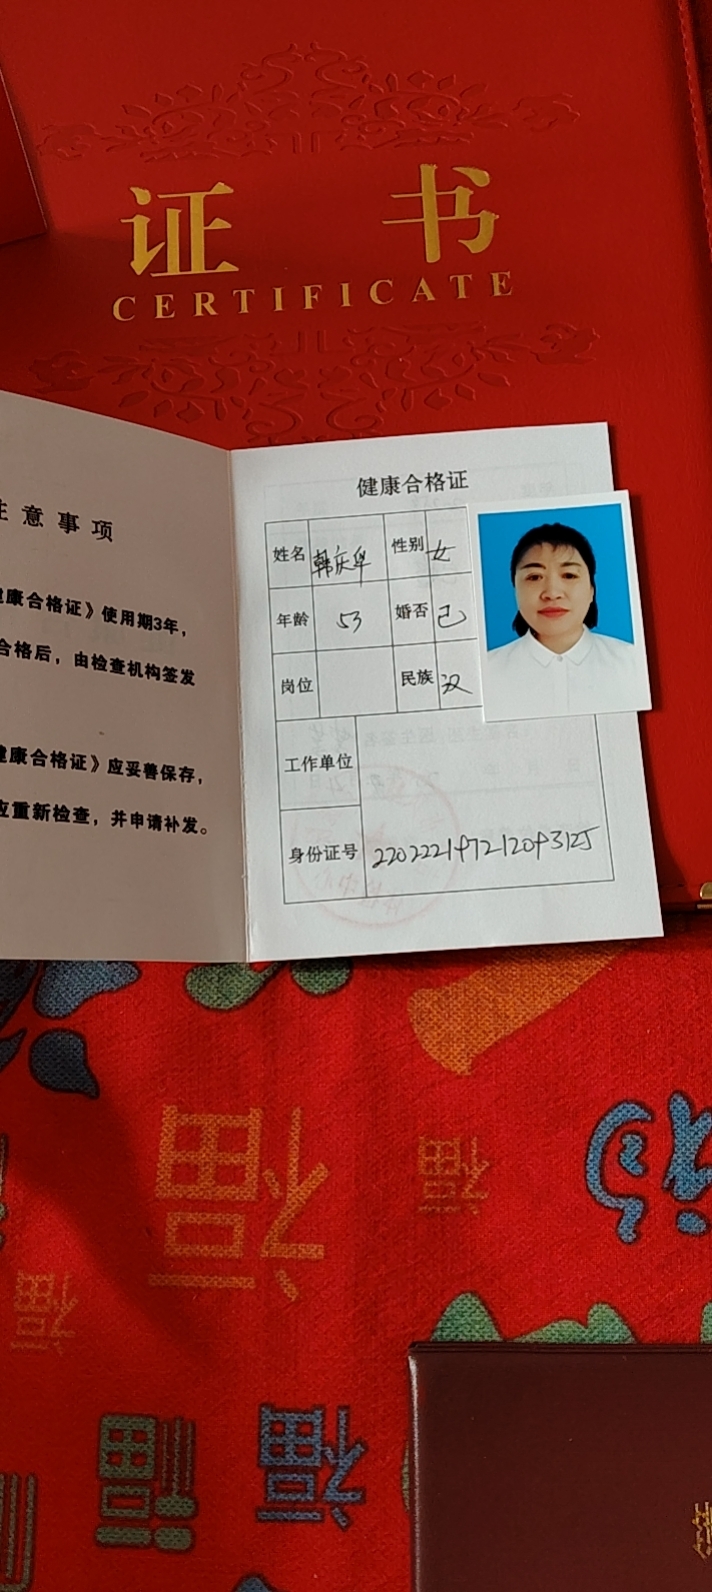 证 书
CERTIFICATE
注意事项
健康合格证》使用期3年，
合格后，由检查机构签发
健康合格证》应妥善保存，
应重新检查，并申请补发。
健康合格证
姓名 韩庆华 性别 女
年龄 53 婚否 已
岗位 民族 汉
工作单位
身份证号
福
福
福
福
福